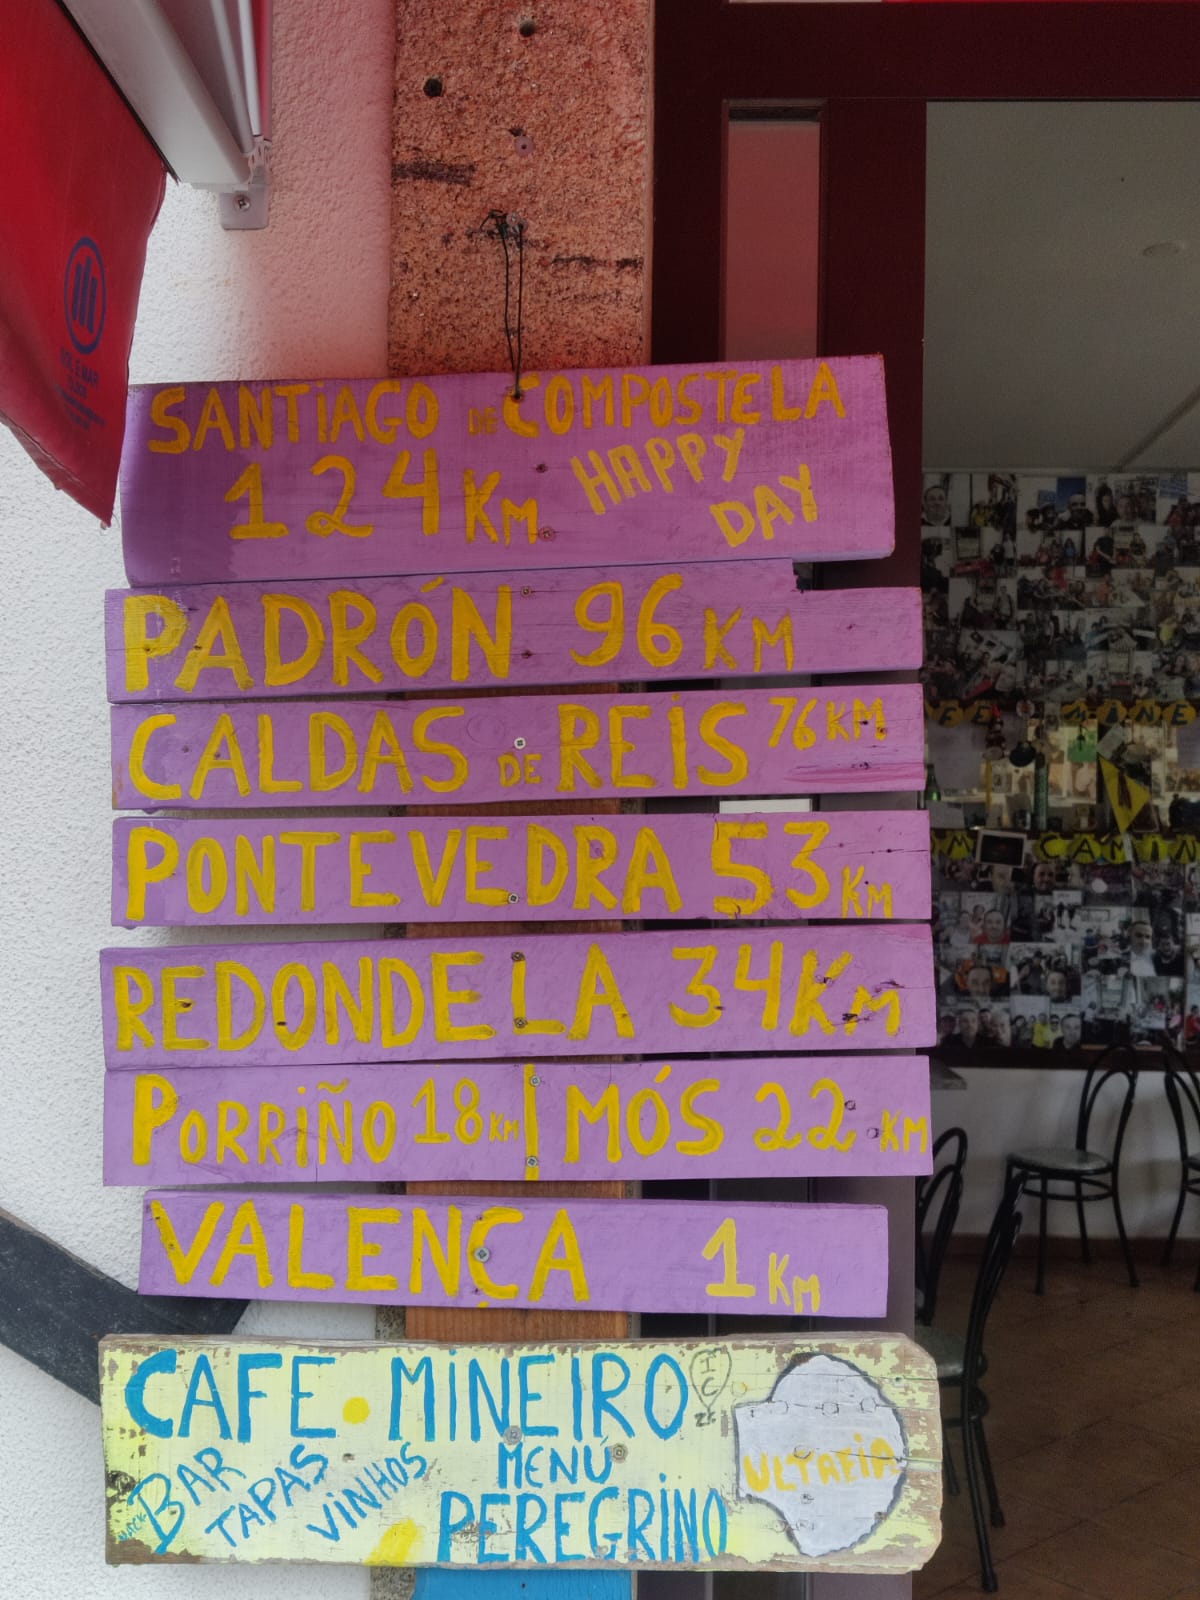 SANTIAGO DE COMPOSTELA
124 Km HAPPY
DAY
PADRÓN 96 KM
CALDAS DE REIS 76 KM
PONTEVEDRA 53 Km
REDONDELA 34 Km
PORRIÑO 18 KM | MÓS 22 KM
VALENÇA 1 Km
CAFE · MINEIRO
BAR TAPAS VINHOS
MENÚ
PEREGRINO
ULTREIA